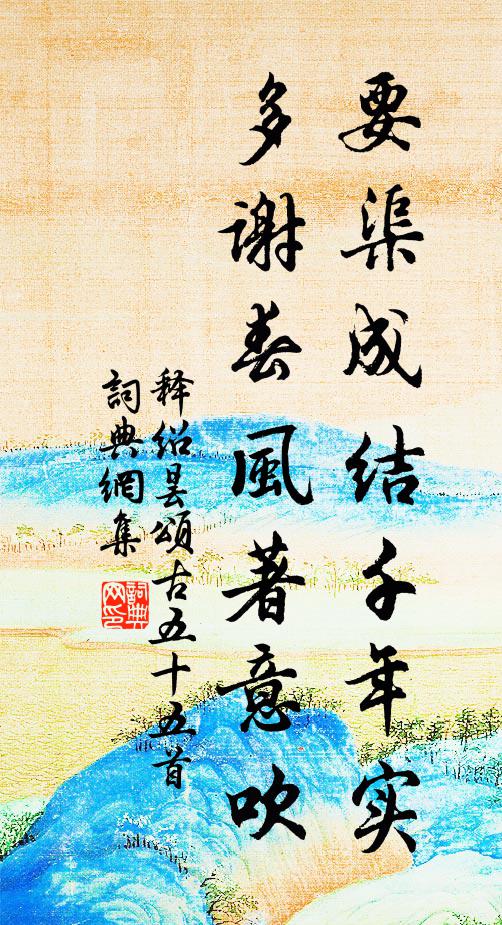 要渠成结千年实
多谢春風著意吹
释绍昙頌古五十五首
詞典網集
詞典网印